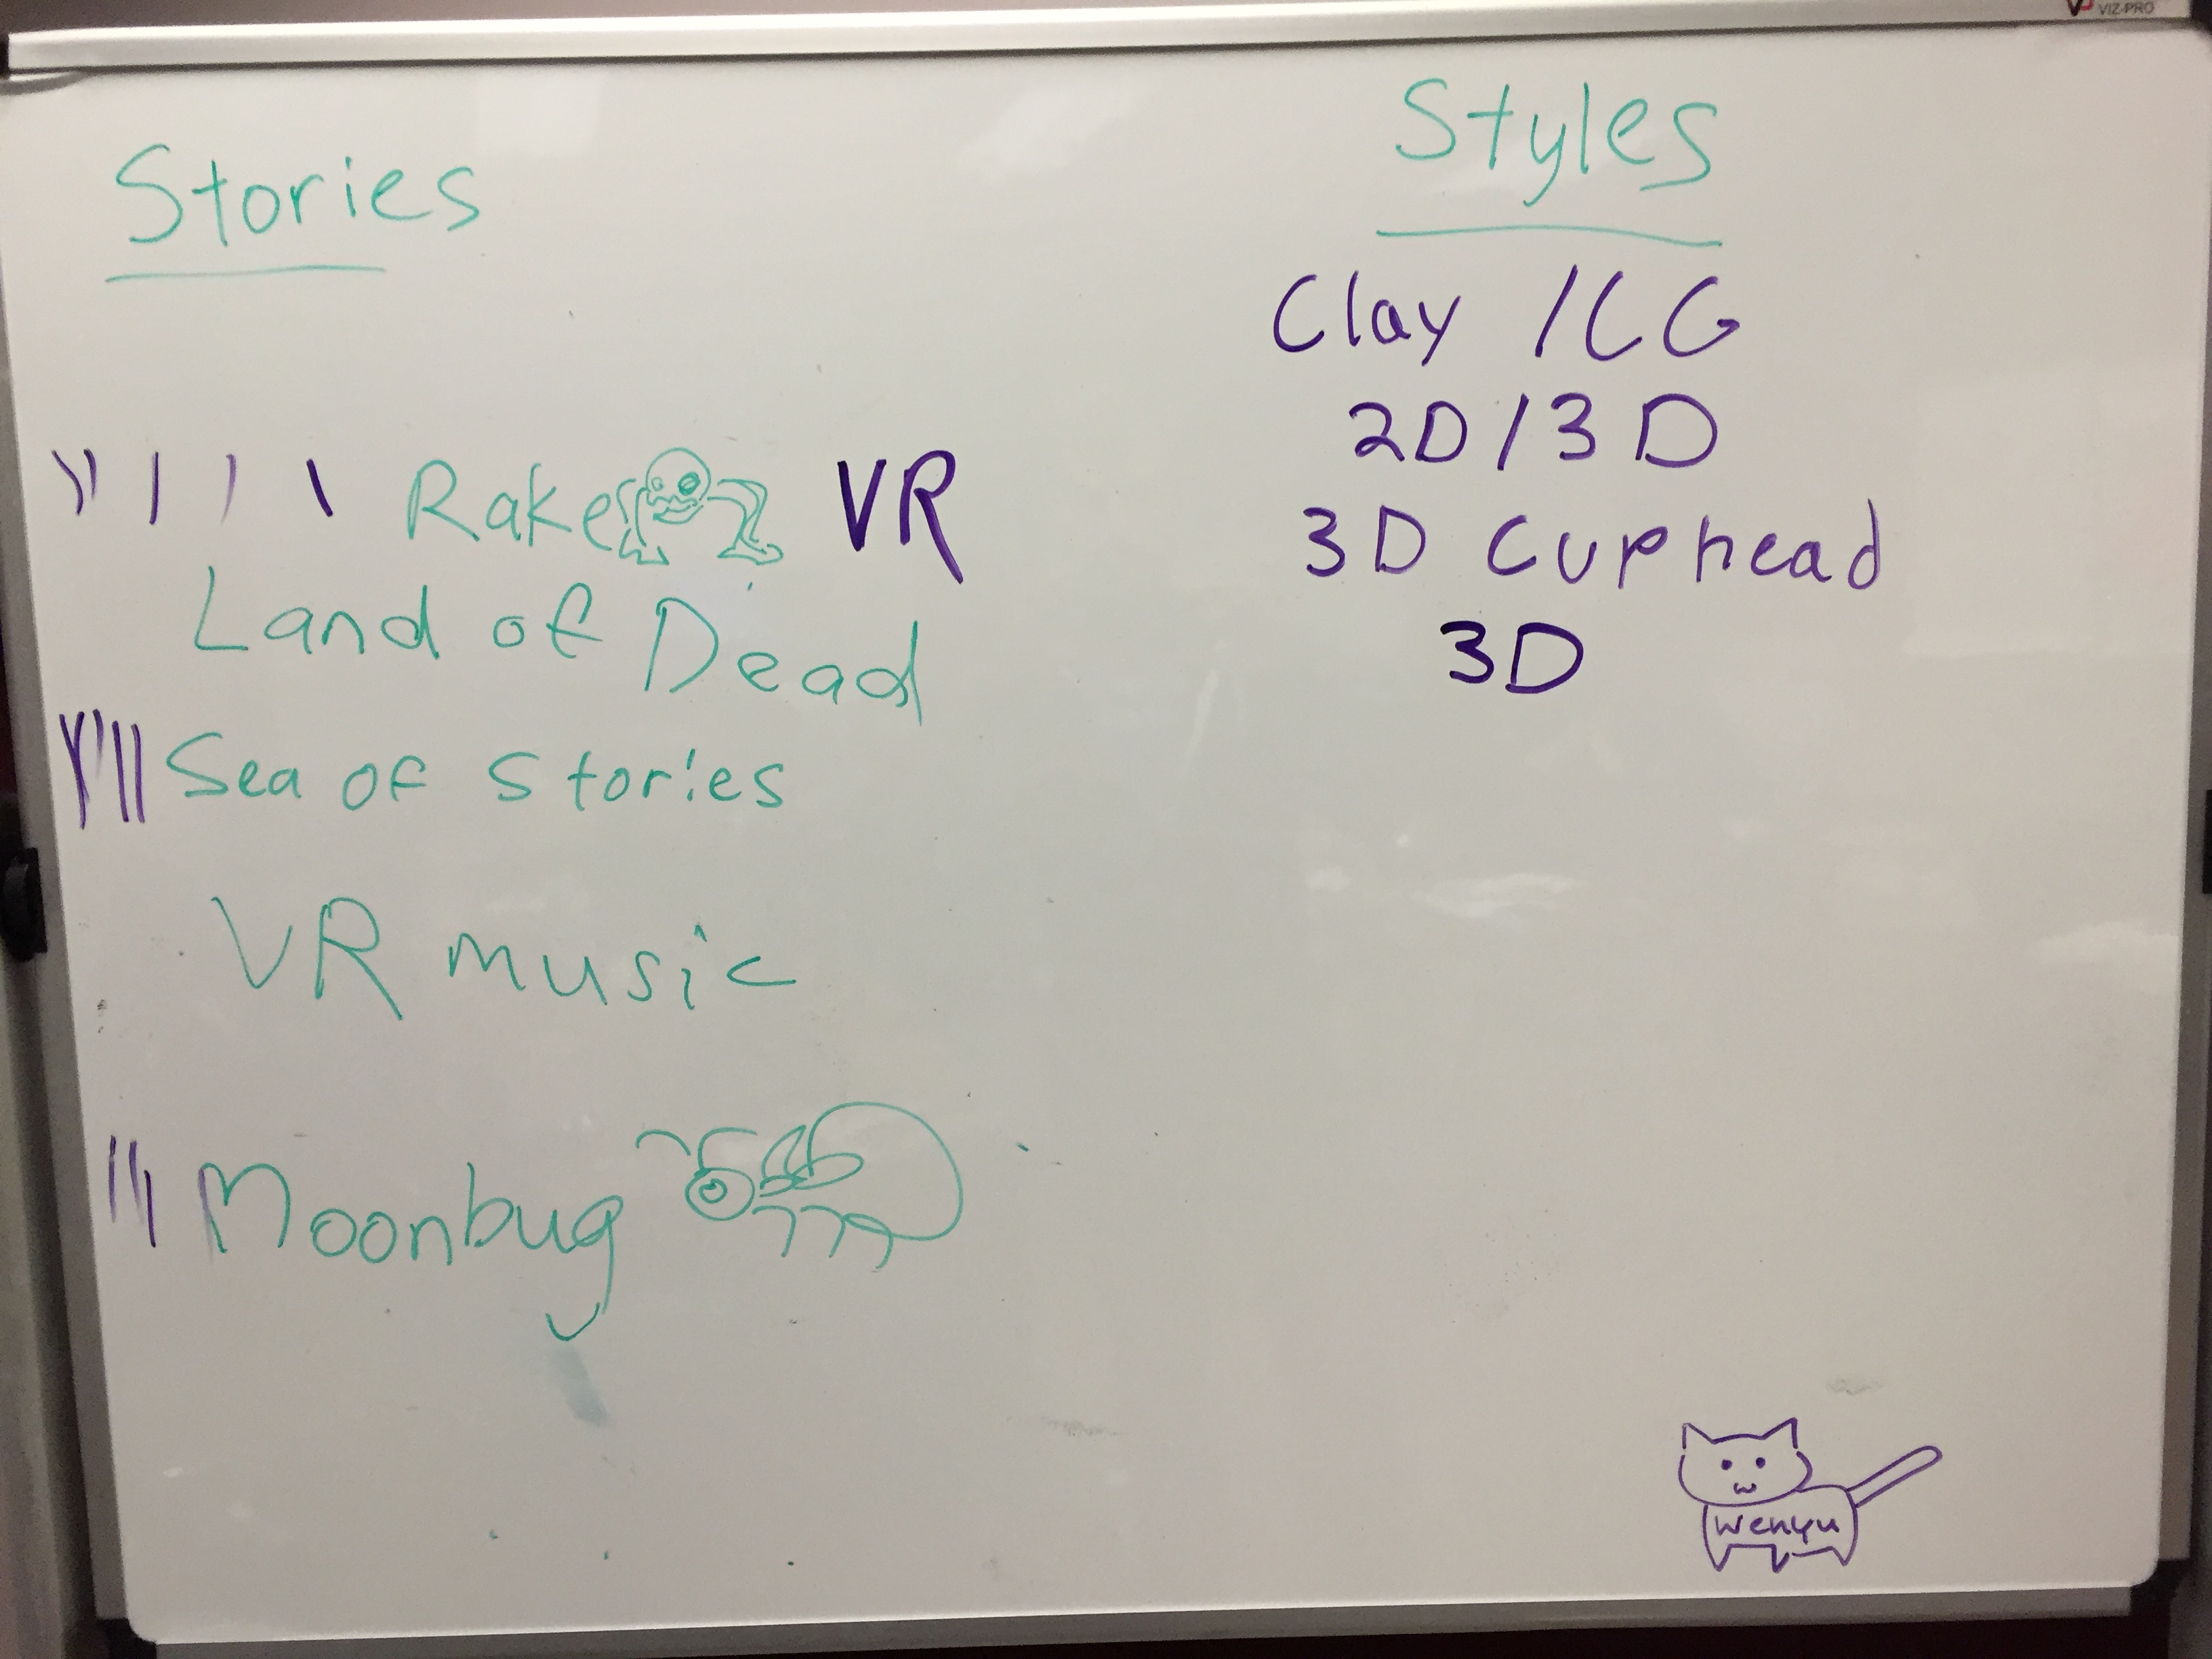 VIZ-PRO
Stories
Rake VR
Land of Dead
Sea of Stories
VR music
Moonbug
Styles
Clay / CG
2D / 3D
3D Cuphead
3D
Wenyu